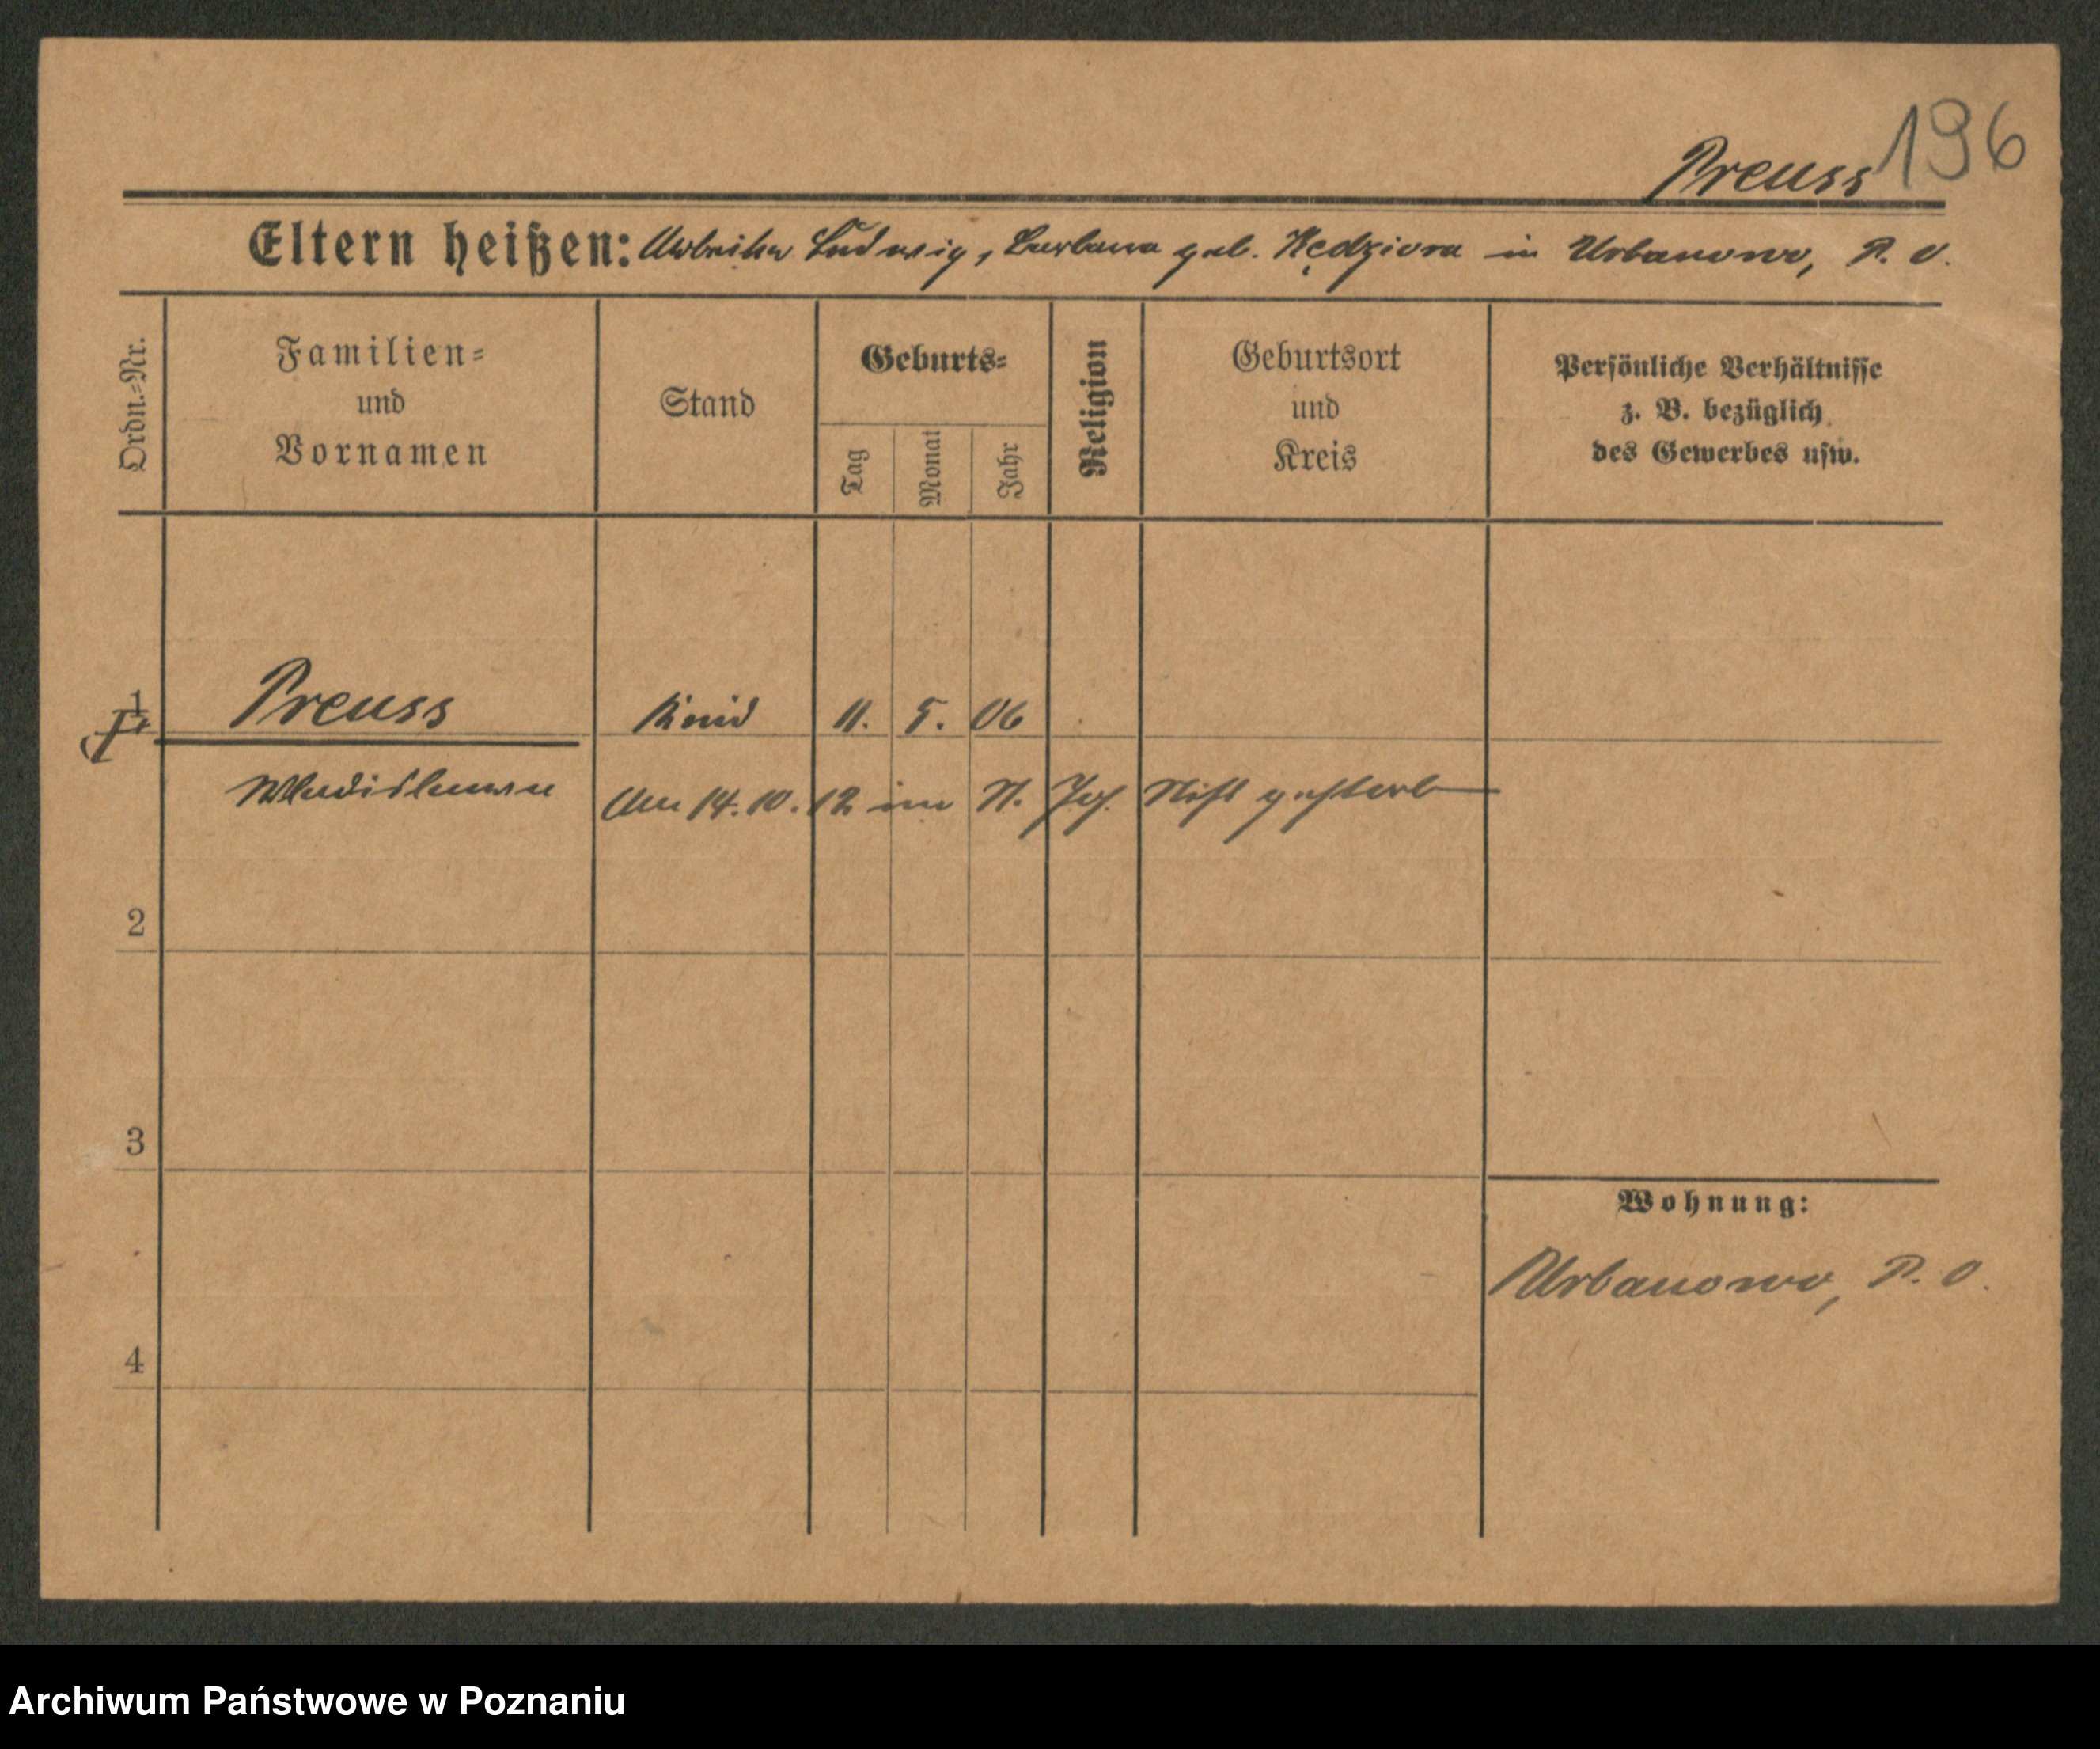 196
Preuss
Eltern heißen: Arbeiter Ludwig, Barbara geb. Kędziora in Urbanowo, P. O.
Ordn.=Nr.
Familien=
und
Vornamen
Stand
Geburts=
Tag
Monat
Jahr
Religion
Geburtsort
und
Kreis
Persönliche Verhältnisse
z. B. bezüglich
des Gewerbes usw.
1
Preuss
Kind 11. 5. 06
Wladislawa
Am 14. 10. 12 im St. Jos. Stift gestorb
2
3
4
Wohnung:
Urbanowo, P. O.
Archiwum Państwowe w Poznaniu